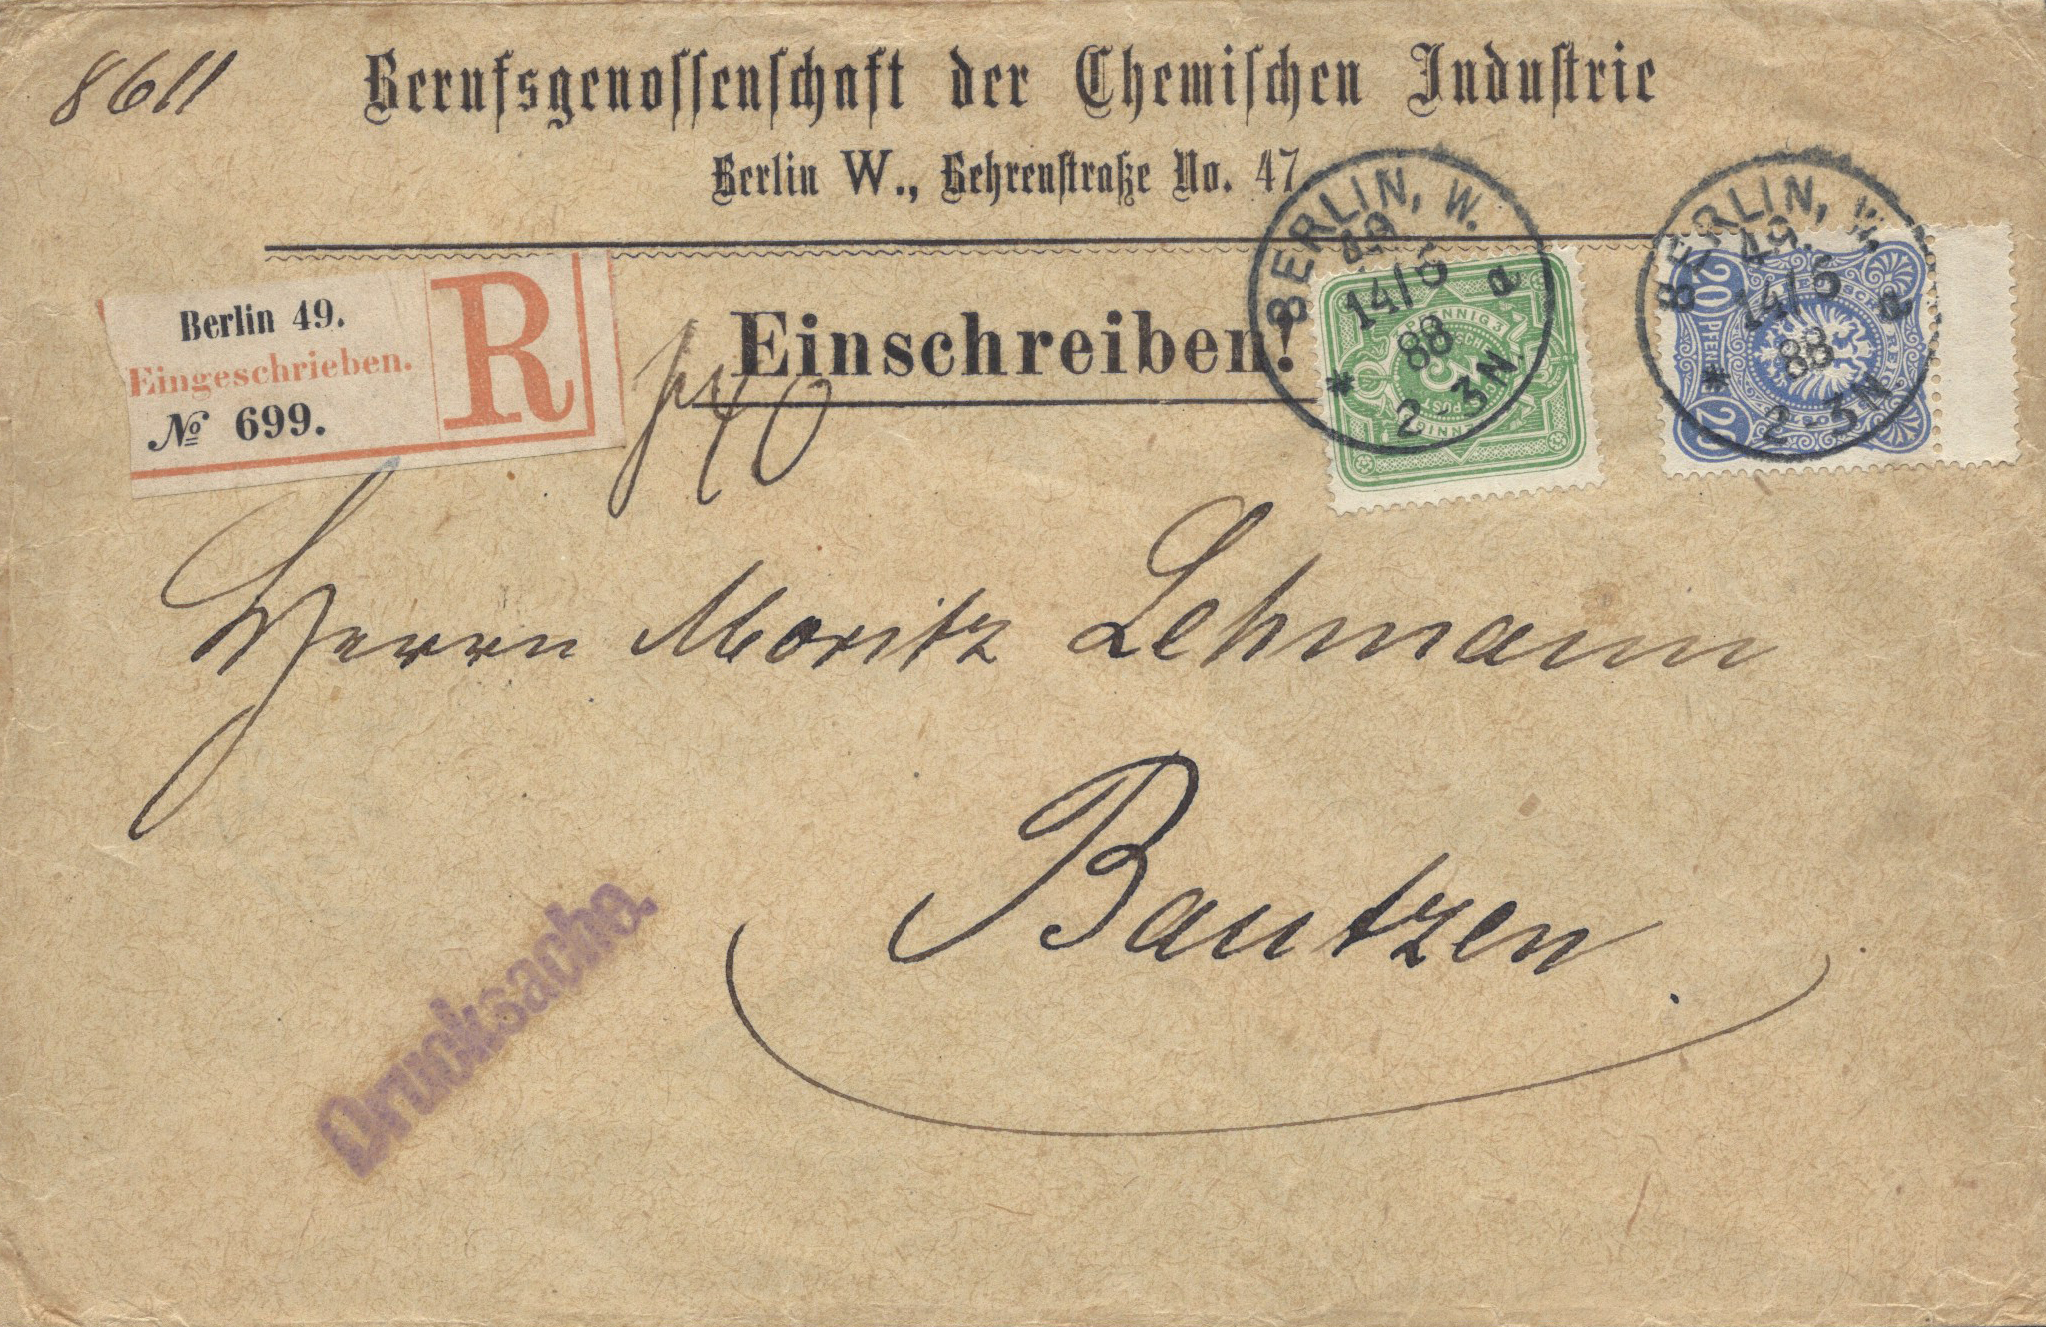 8611
Berufsgenossenschaft der Chemischen Industrie
Berlin W., Behrenstraße No. 47
Berlin 49.
Eingeschrieben.
№ 699.
R
Einschreiben!
BERLIN, W.
49.
14/6
88
a
* 2-3N
PFENNIG 3
BERLIN, W.
49.
14/6
88
a
* 2-3N
20 PFENNIG 20
Herrn Moritz Lehmann
Bautzen
Drucksache.